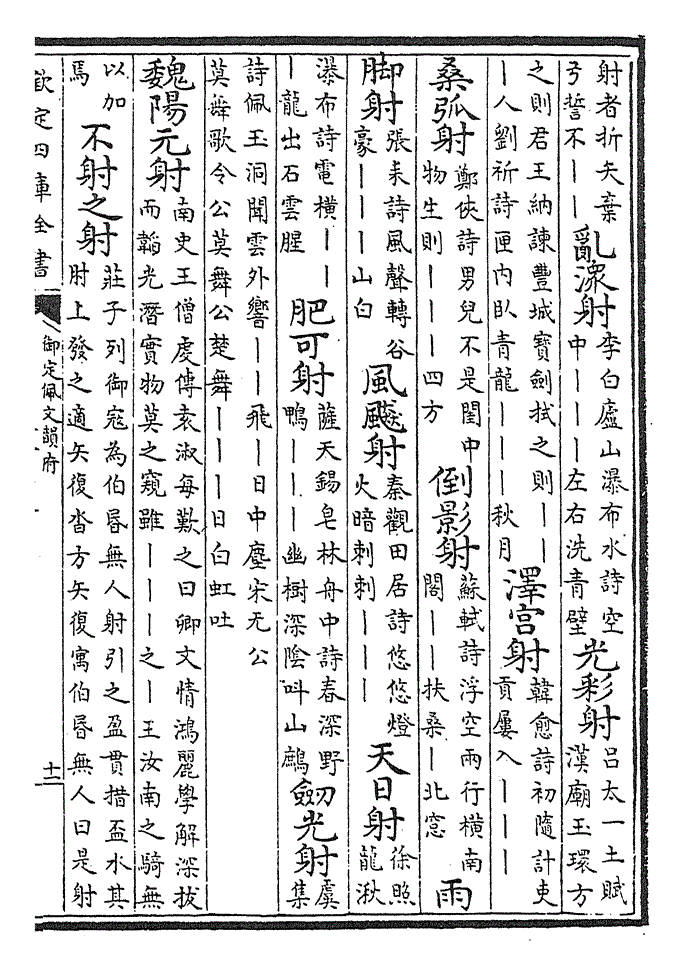 射者折矢棄弓誓不——亂潨射李白廬山瀑布水詩空中———左右洗青壁光彩射呂太一土賦漢廟玉環方
之則君王納諫豐城寶劍拭之則———人劉祈詩匣内卧青龍———秋月澤宫射韓愈詩初隨計吏貢屢入———
桑弧射鄭俠詩男兒不是閨中物生則———四方倒影射蘇軾詩浮空兩行横南閣——扶桑—北窓雨
脚射張耒詩風聲轉谷豪———山白風飈射秦觀田居詩悠悠燈火暗刺刺———天日射徐照龍湫
瀑布詩電横———龍出石雲腥肥可射薩天錫皂林舟中詩春深野鴨———幽樹深陰叫山鷓劒光射虞集
詩佩玉洞聞雲外響——飛—日中塵宋无公莫舞歌令公莫舞公楚舞———日白虹吐
魏陽元射南史王僧虔傳袁淑每歎之曰卿文情鴻麗學解深拔而韜光潛實物莫之窺雖———之—王汝南之騎無
以加焉不射之射莊子列御寇為伯昏無人射引之盈貫措盃水其肘上發之適矢復沓方矢復寓伯昏無人曰是射
欽定四庫全書
御定佩文韻府
十二